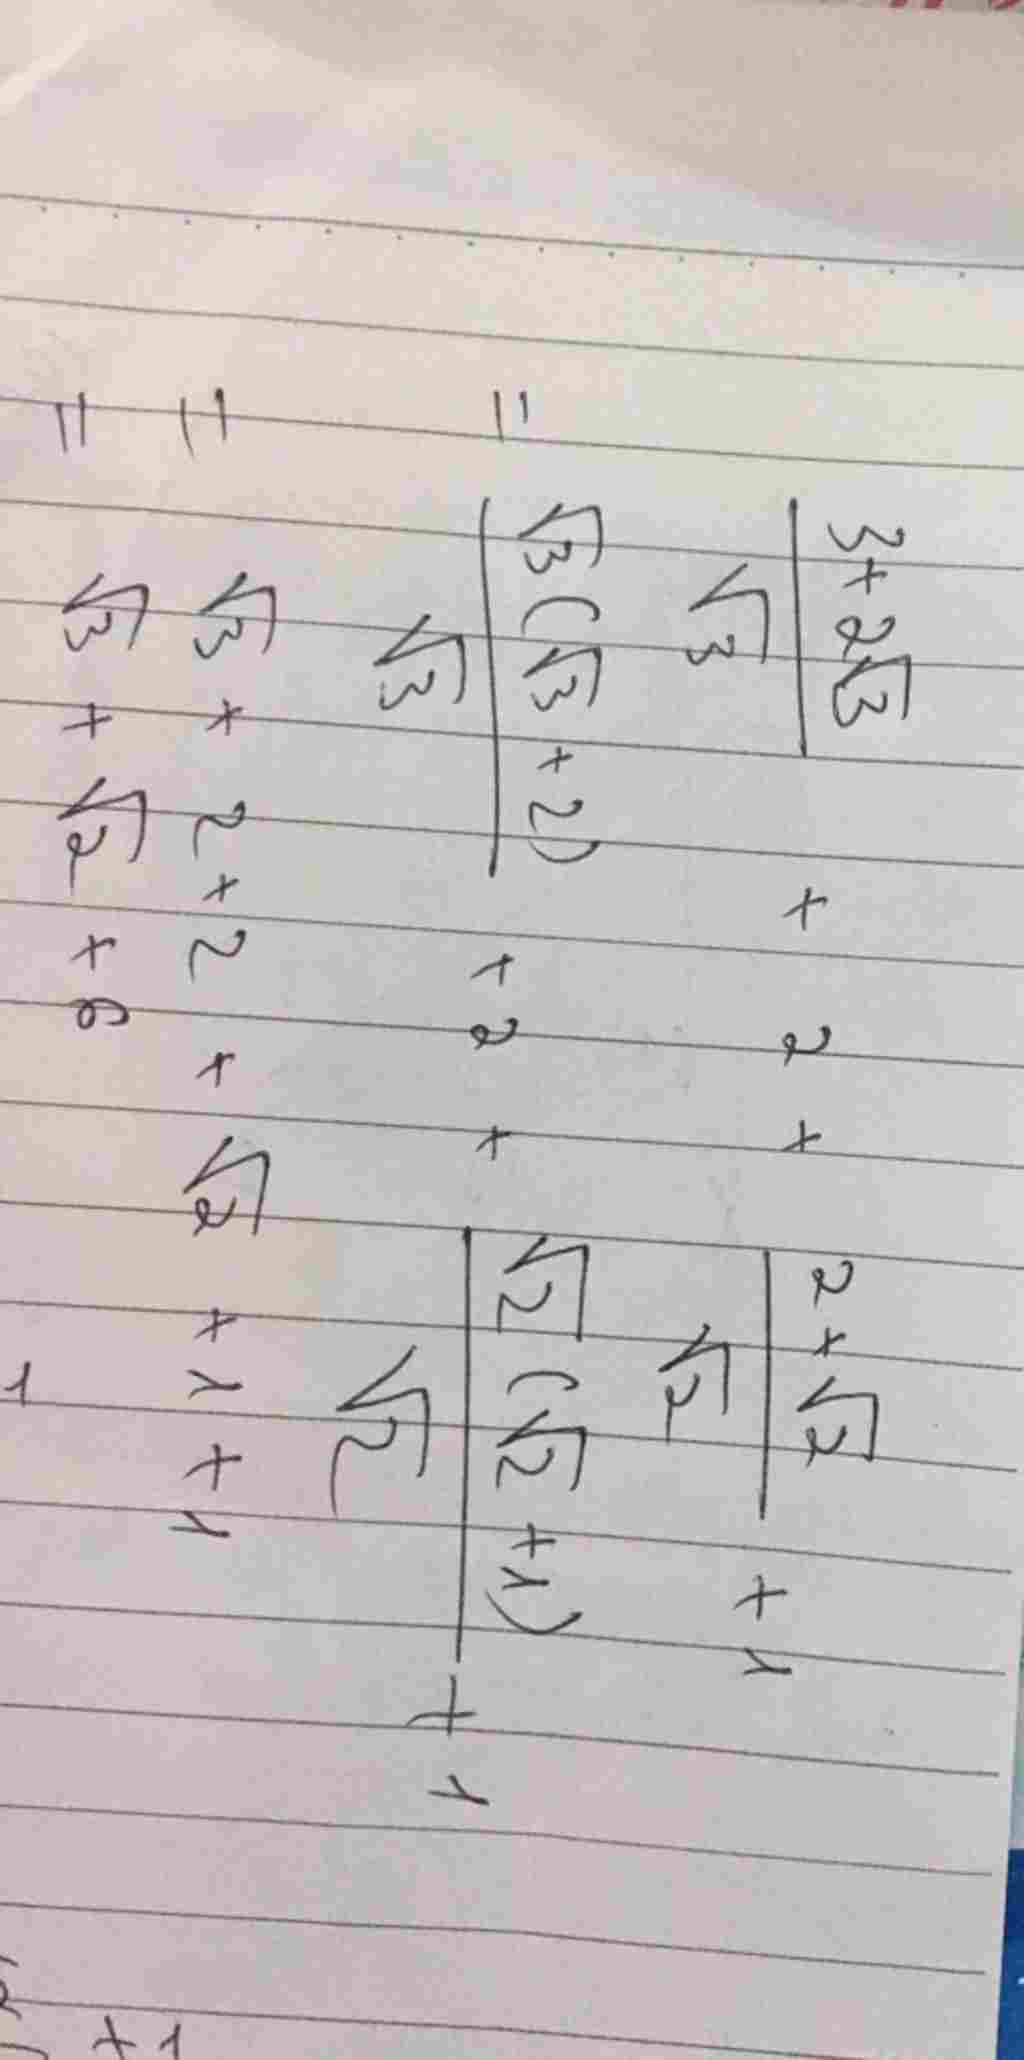 3+2√3 / √3 + 2 + 2+√2 / √2 + 1
= √3(√3+2) / √3 + 2 + √2(√2+1) / √2 + 1
= √3 + 2 + 2 + √2 + 1 + 1
= √3 + √2 + 6